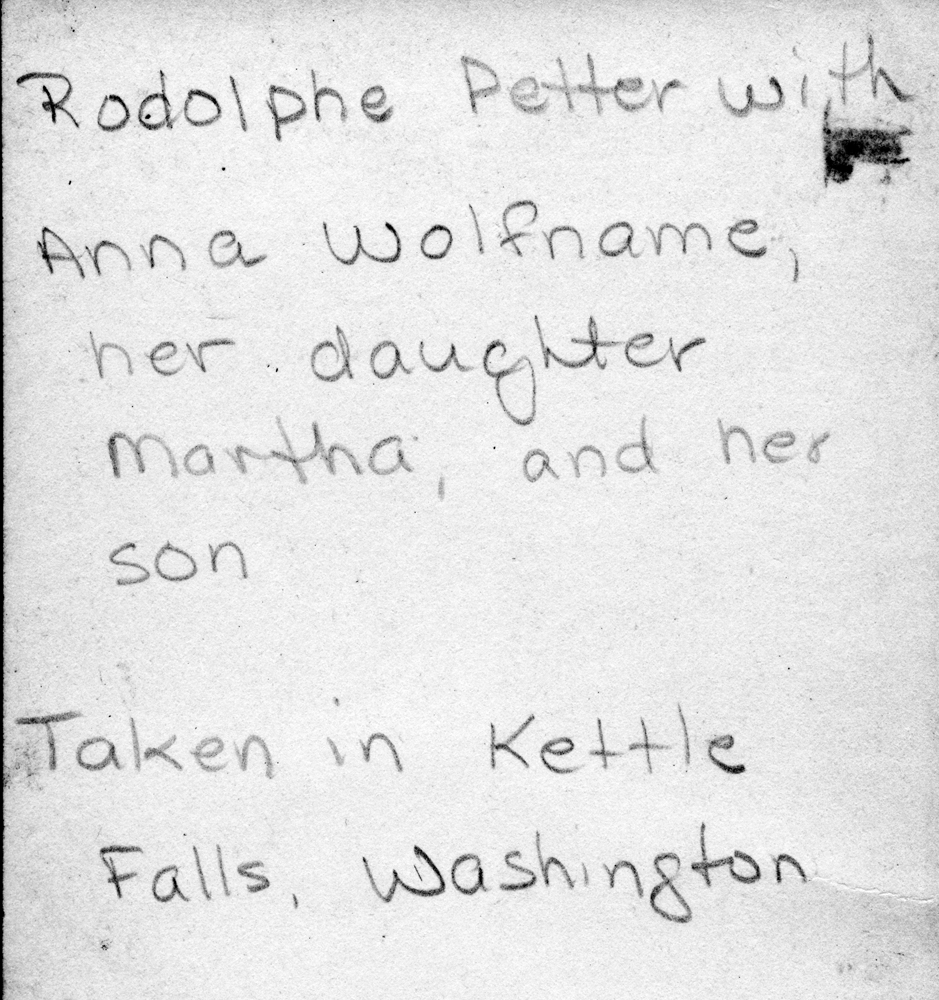 Rodolphe Petter with
Anna Wolfname,
her daughter
Martha, and her
son
Taken in Kettle
Falls, Washington